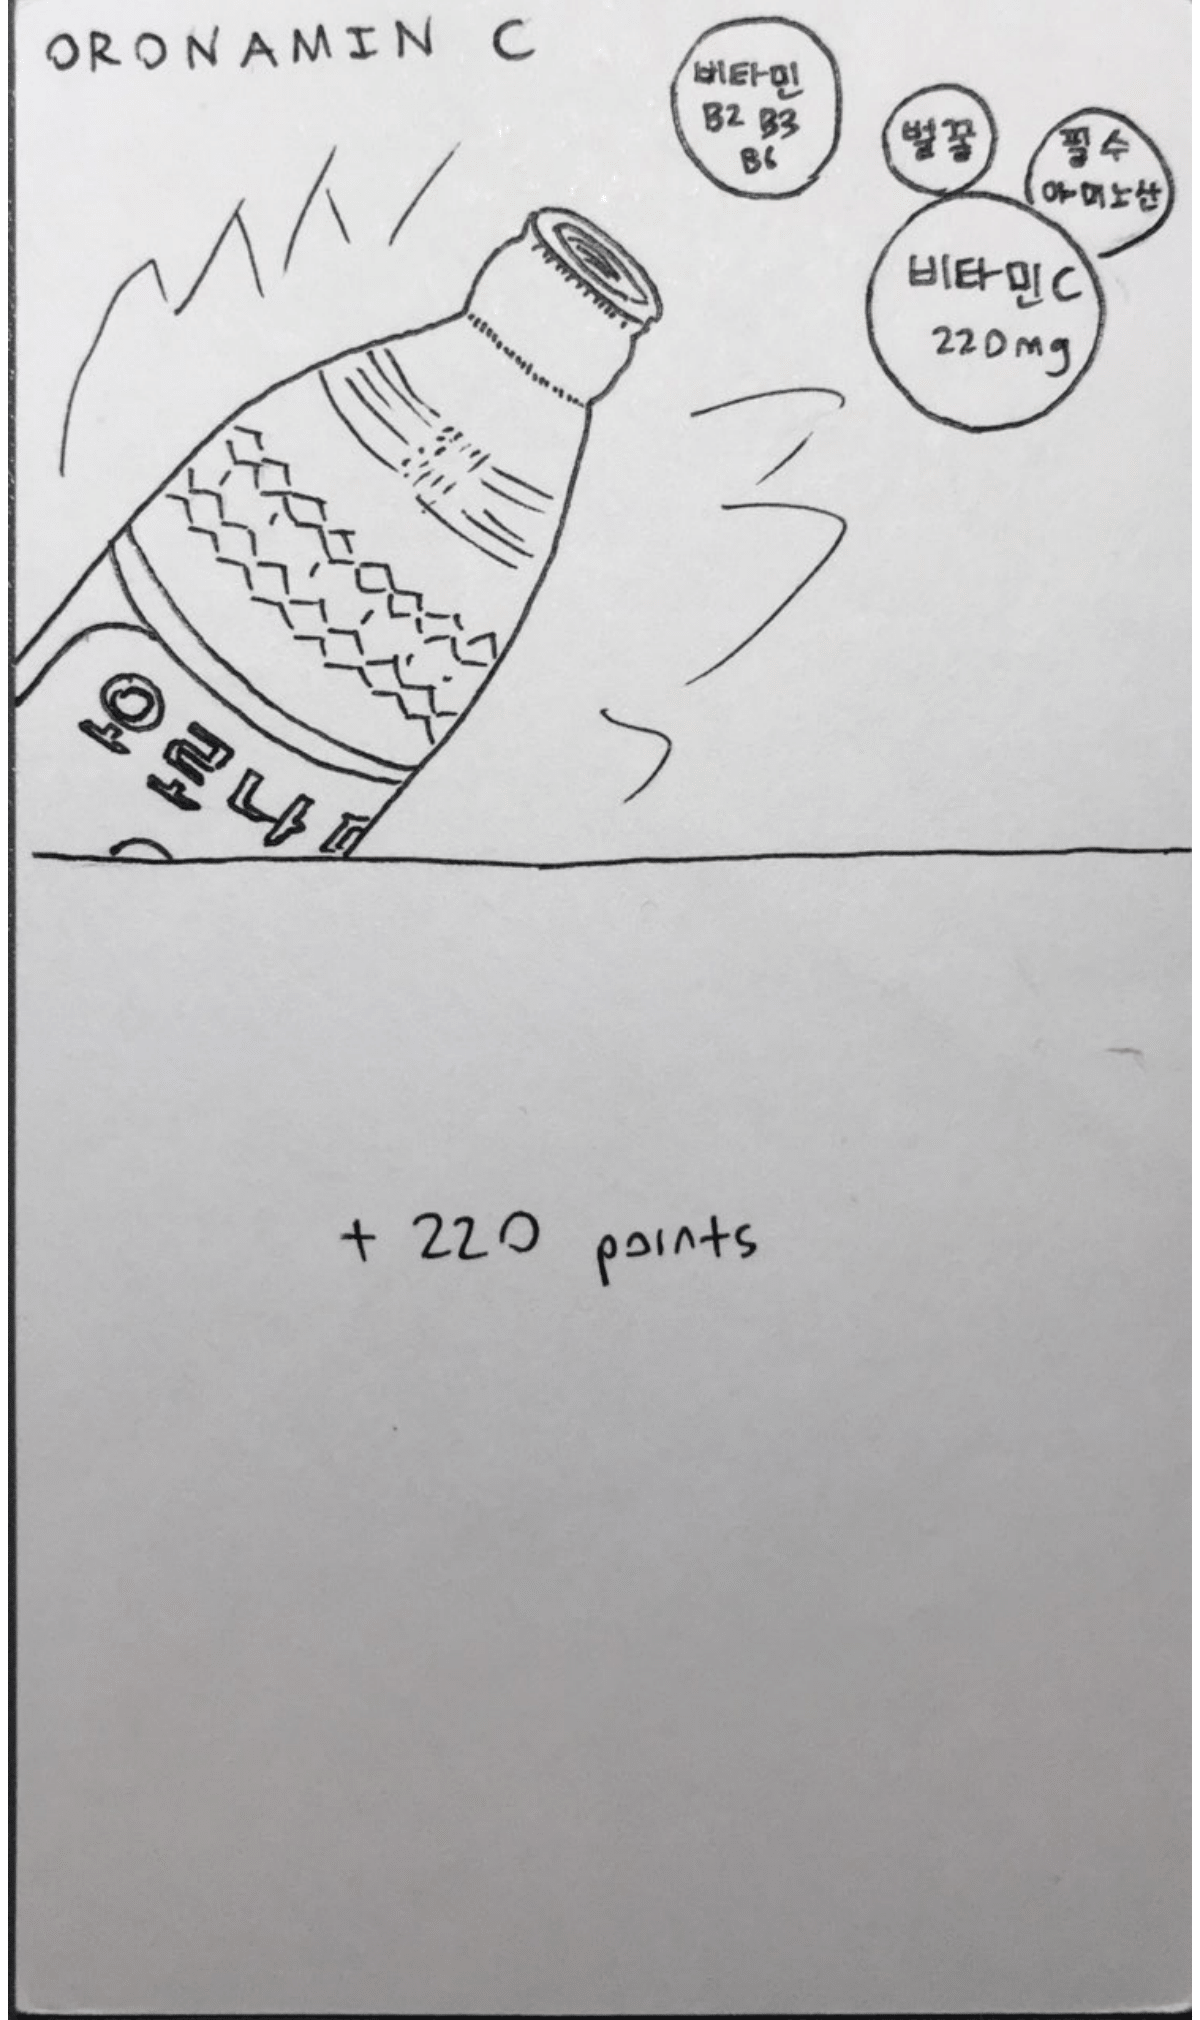 ORONAMIN C
비타민
B2 B3
B6
벌꿀
필수
아미노산
비타민C
220mg
오로나
+ 220 points